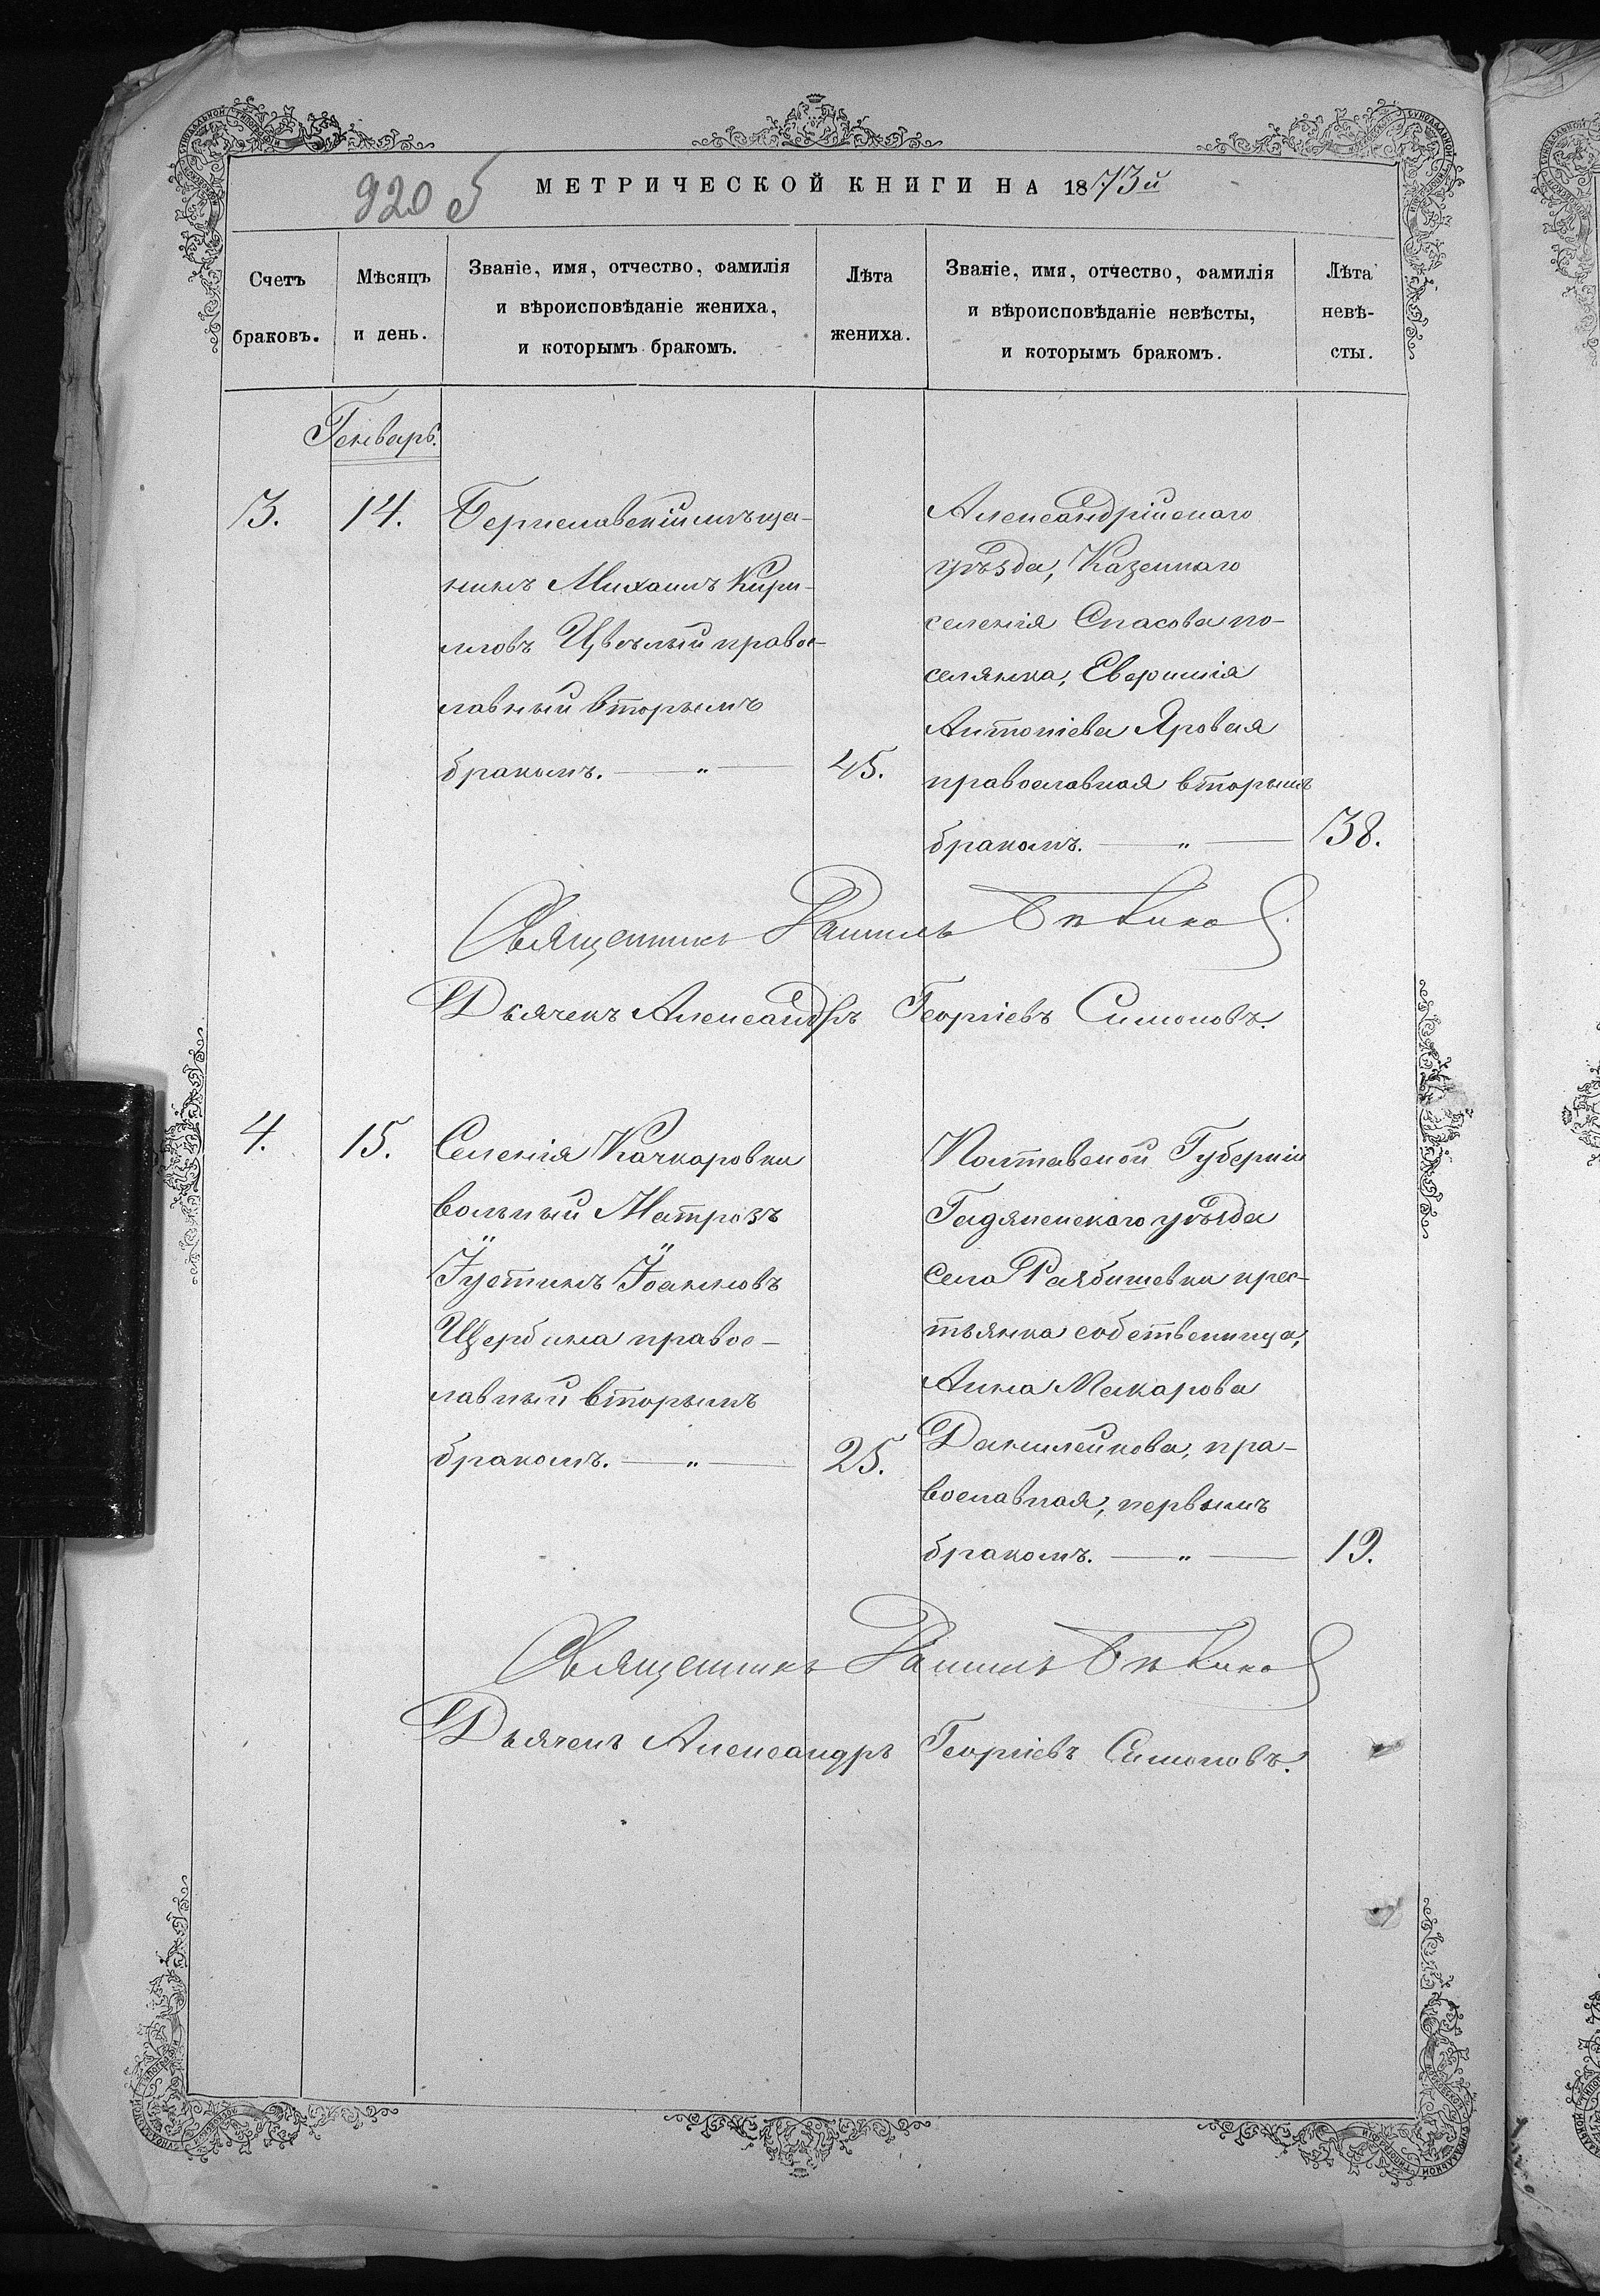 920 б
МЕТРИЧЕСКОЙ КНИГИ НА 1873й
Счетъ браковъ.
Мѣсяцъ и день.
Званіе, имя, отчество, фамилія
и вѣроисповѣданіе жениха,
и которымъ бракомъ.
Лѣта жениха.
Званіе, имя, отчество, фамилія
и вѣроисповѣданіе невѣсты,
и которымъ бракомъ.
Лѣта невѣ-
сты.
Генварь.
3.
14.
Бериславскій мѣща-
нинъ Михаилъ Кири-
ловъ правос-
лавный вторымъ
бракомъ. — „ —
45.
Александрійскаго
уѣзда, Казеннаго
селенія Спасова по-
селянка,
Антоніева Яровая
православная вторымъ
бракомъ. — „ —
38.
Священникъ Даніилъ
Дьячекъ Александръ Георгіевъ Симоновъ.
4.
15.
Селенія Качкаровки
вольный Матрозъ
Іустинъ Іоанновъ
Щербина правос-
лавный вторымъ
бракомъ. — „ —
25.
Полтавской Губерніи
Гадяченскаго уѣзда
села крес-
тьянка собственница,
Анна Макарова
Данилейкова, пра-
вославная, первымъ
бракомъ. — „ —
19.
Священникъ Даніилъ
Дьячекъ Александръ Георгіевъ Симоновъ.